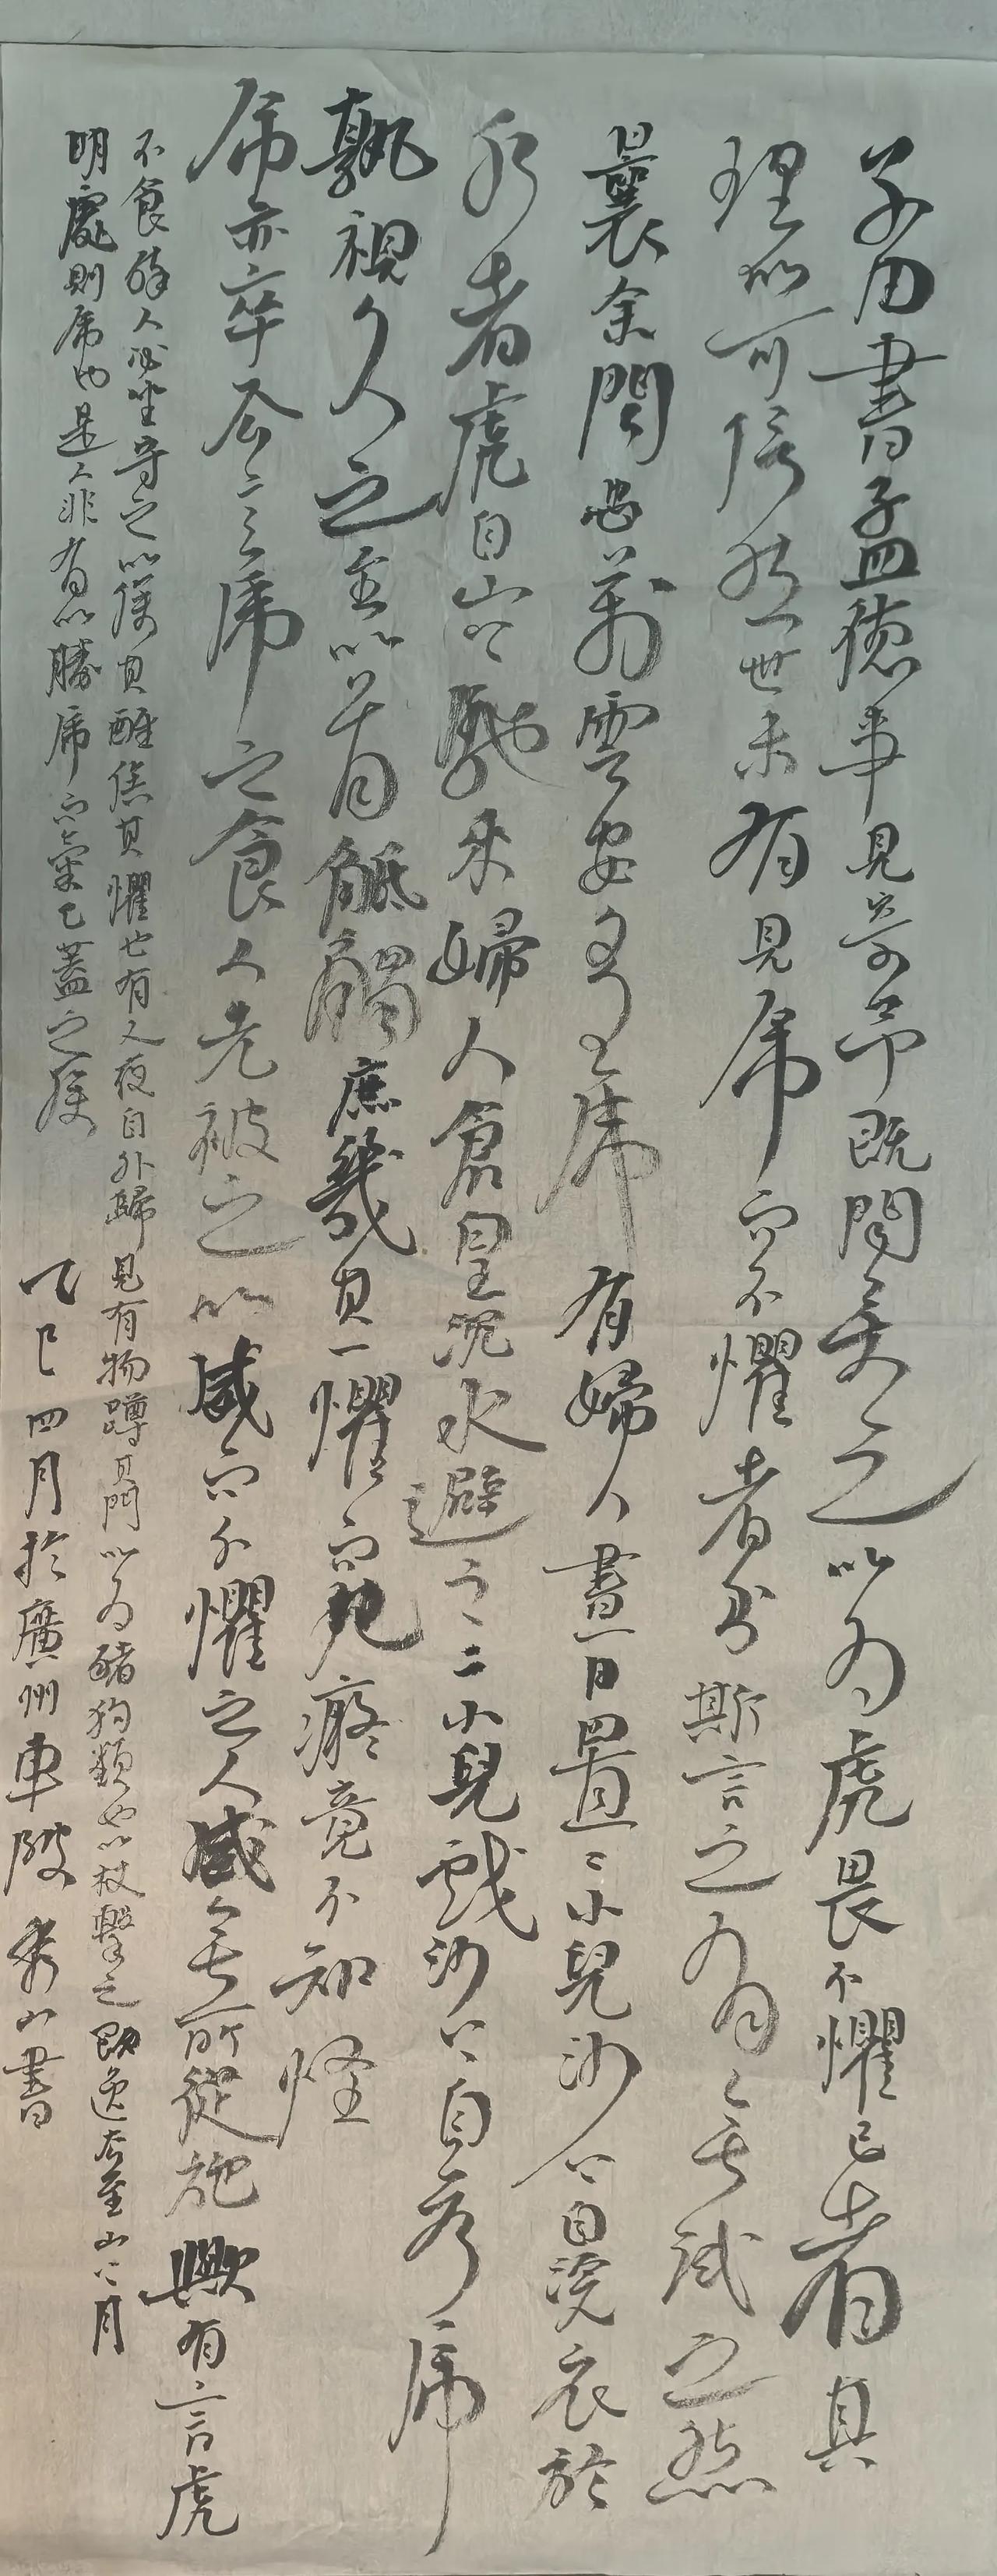 子由書孟德事見寄予既聞異之以為虎畏不懼己者其
理似可信然世未有見虎而不懼者則斯言之有無試之然
曩余聞忠萬雲安多虎有婦人晝日置二小兒沙上自浣衣於
水者虎自山上馳來婦人倉皇沉水避之二小兒戲沙上自若虎
孰視久之至以首觝觸庶幾其一懼而兒癡竟不知怪
虎亦卒去意虎之食人先被之以威而不懼之人威無所從施歟有言虎
不食醉人必坐守之以俟其醒俟其懼也有人夜自外歸見有物蹲其門以為豬狗類也以杖擊之即逸去至山下月
明處則虎也是人非有以勝虎而氣已蓋之矣 乙巳四月於廣州車陂 秀山書